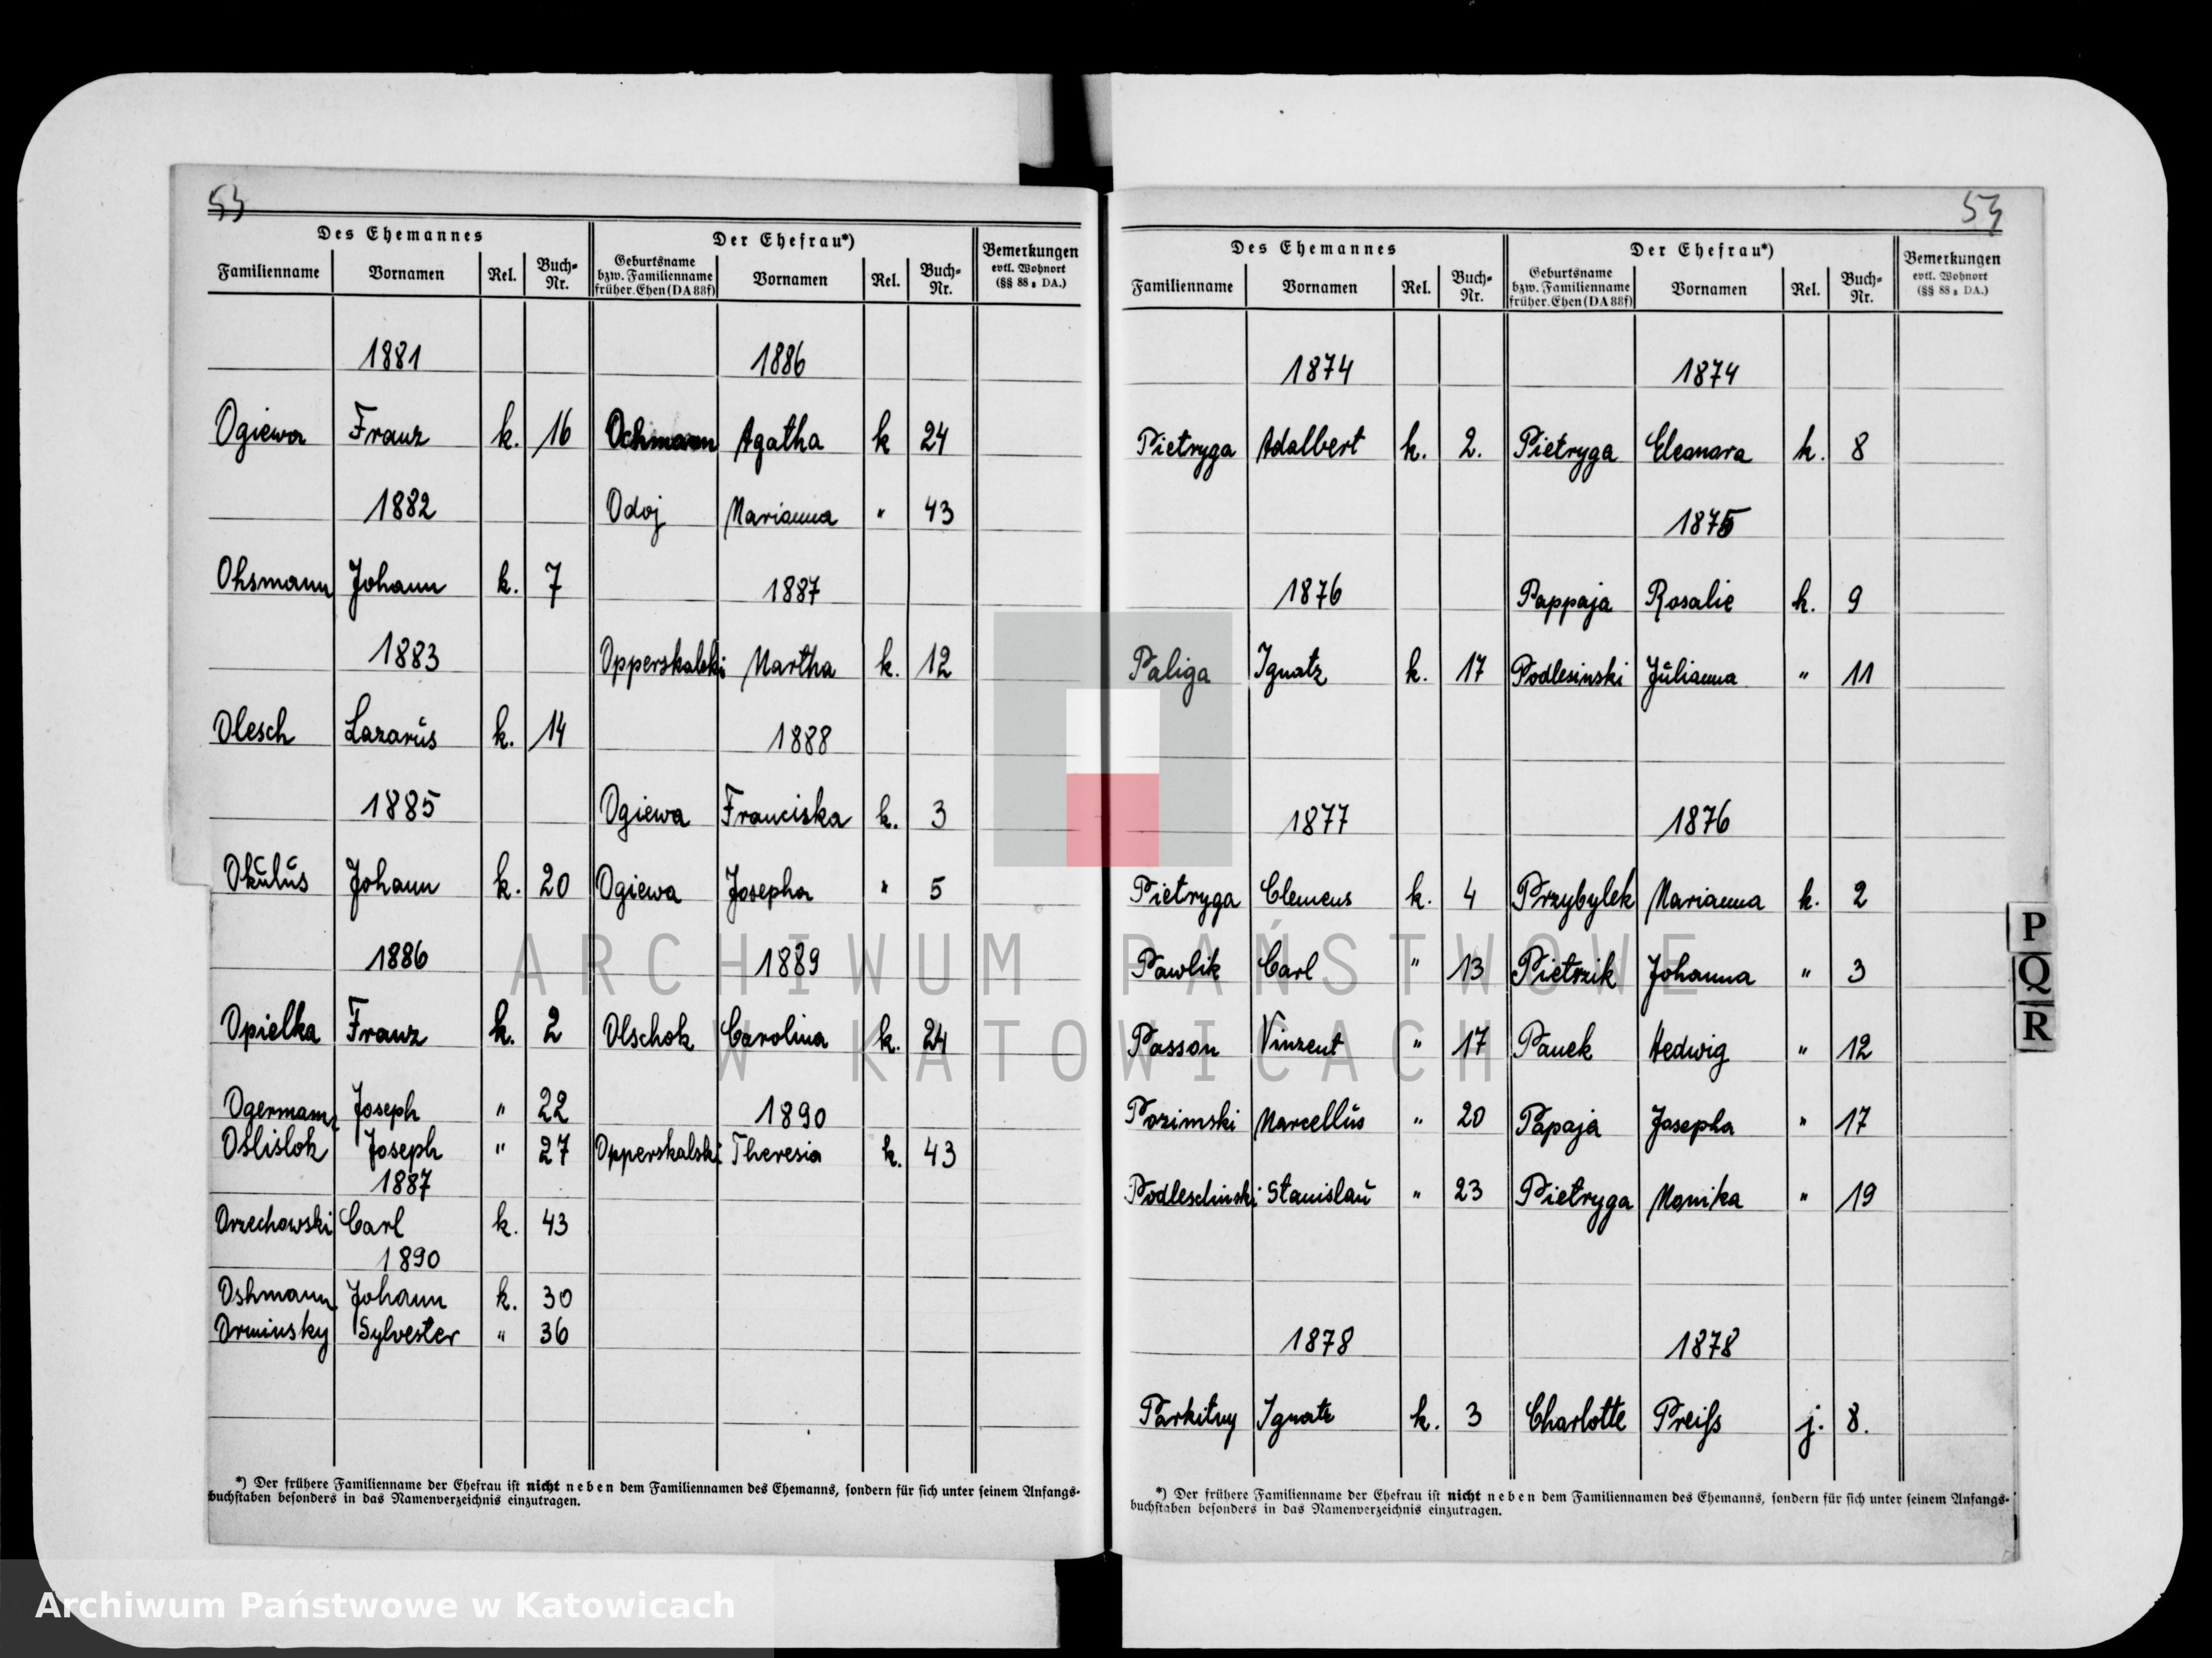 53
Des Ehemannes Der Ehefrau*) Bemerkungen evtl. Wohnort (§§ 88 2 DA.)
Familienname Vornamen Rel. Buch-Nr. Geburtsname bzw. Familienname früher. Ehen (DA 88f) Vornamen Rel. Buch-Nr.
1881 1886
Ogiewa Franz k. 16 Ochmann Agatha k 24
1882 Odoj Marianna " 43
Ohsmann Johann k. 7 1887
1883 Opperskalski Martha k. 12
Olesch Lazarus k. 14 1888
1885 Ogiewa Franciska k. 3
Okulus Johann k. 20 Ogiewa Josepha " 5
1886 1889
Opielka Franz k. 2 Olschok Carolina k. 24
Ogermann Joseph " 22 1890
Oslislok Joseph " 27 Opperskalski Theresia k. 43
1887
Orzechowski Carl k. 43
1890
Oshmann Johann k. 30
Orminsky Sylvester " 36
*) Der frühere Familienname der Ehefrau ist nicht neben dem Familiennamen des Ehemanns, sondern für sich unter seinem Anfangs-
buchstaben besonders in das Namenverzeichnis einzutragen.
Des Ehemannes Der Ehefrau*) Bemerkungen evtl. Wohnort (§§ 88 2 DA.)
Familienname Vornamen Rel. Buch-Nr. Geburtsname bzw. Familienname früher. Ehen (DA 88f) Vornamen Rel. Buch-Nr.
1874 1874
Pietryga Adalbert k. 2. Pietryga Eleonora k. 8
1875
1876 Pappaja Rosalie k. 9
Paliga Ignatz k. 17 Podlesinski Julianna " 11
1877 1876
Pietryga Clemens k. 4 Przybylek Marianna k. 2
Pawlik Carl " 13 Pietrzik Johanna " 3
Passon Vinzent " 17 Panek Hedwig " 12
Pozimski Marcellus " 20 Papaja Josepha " 17
Podleschinski Stanislau " 23 Pietryga Monika " 19
1878 1878
Parkitny Ignatz k. 3 Charlotte Preiss j. 8.
*) Der frühere Familienname der Ehefrau ist nicht neben dem Familiennamen des Ehemanns, sondern für sich unter seinem Anfangs-
buchstaben besonders in das Namenverzeichnis einzutragen.
P
Q
R
ARCHIWUM PAŃSTWOWE
W KATOWICACH
Archiwum Państwowe w Katowicach